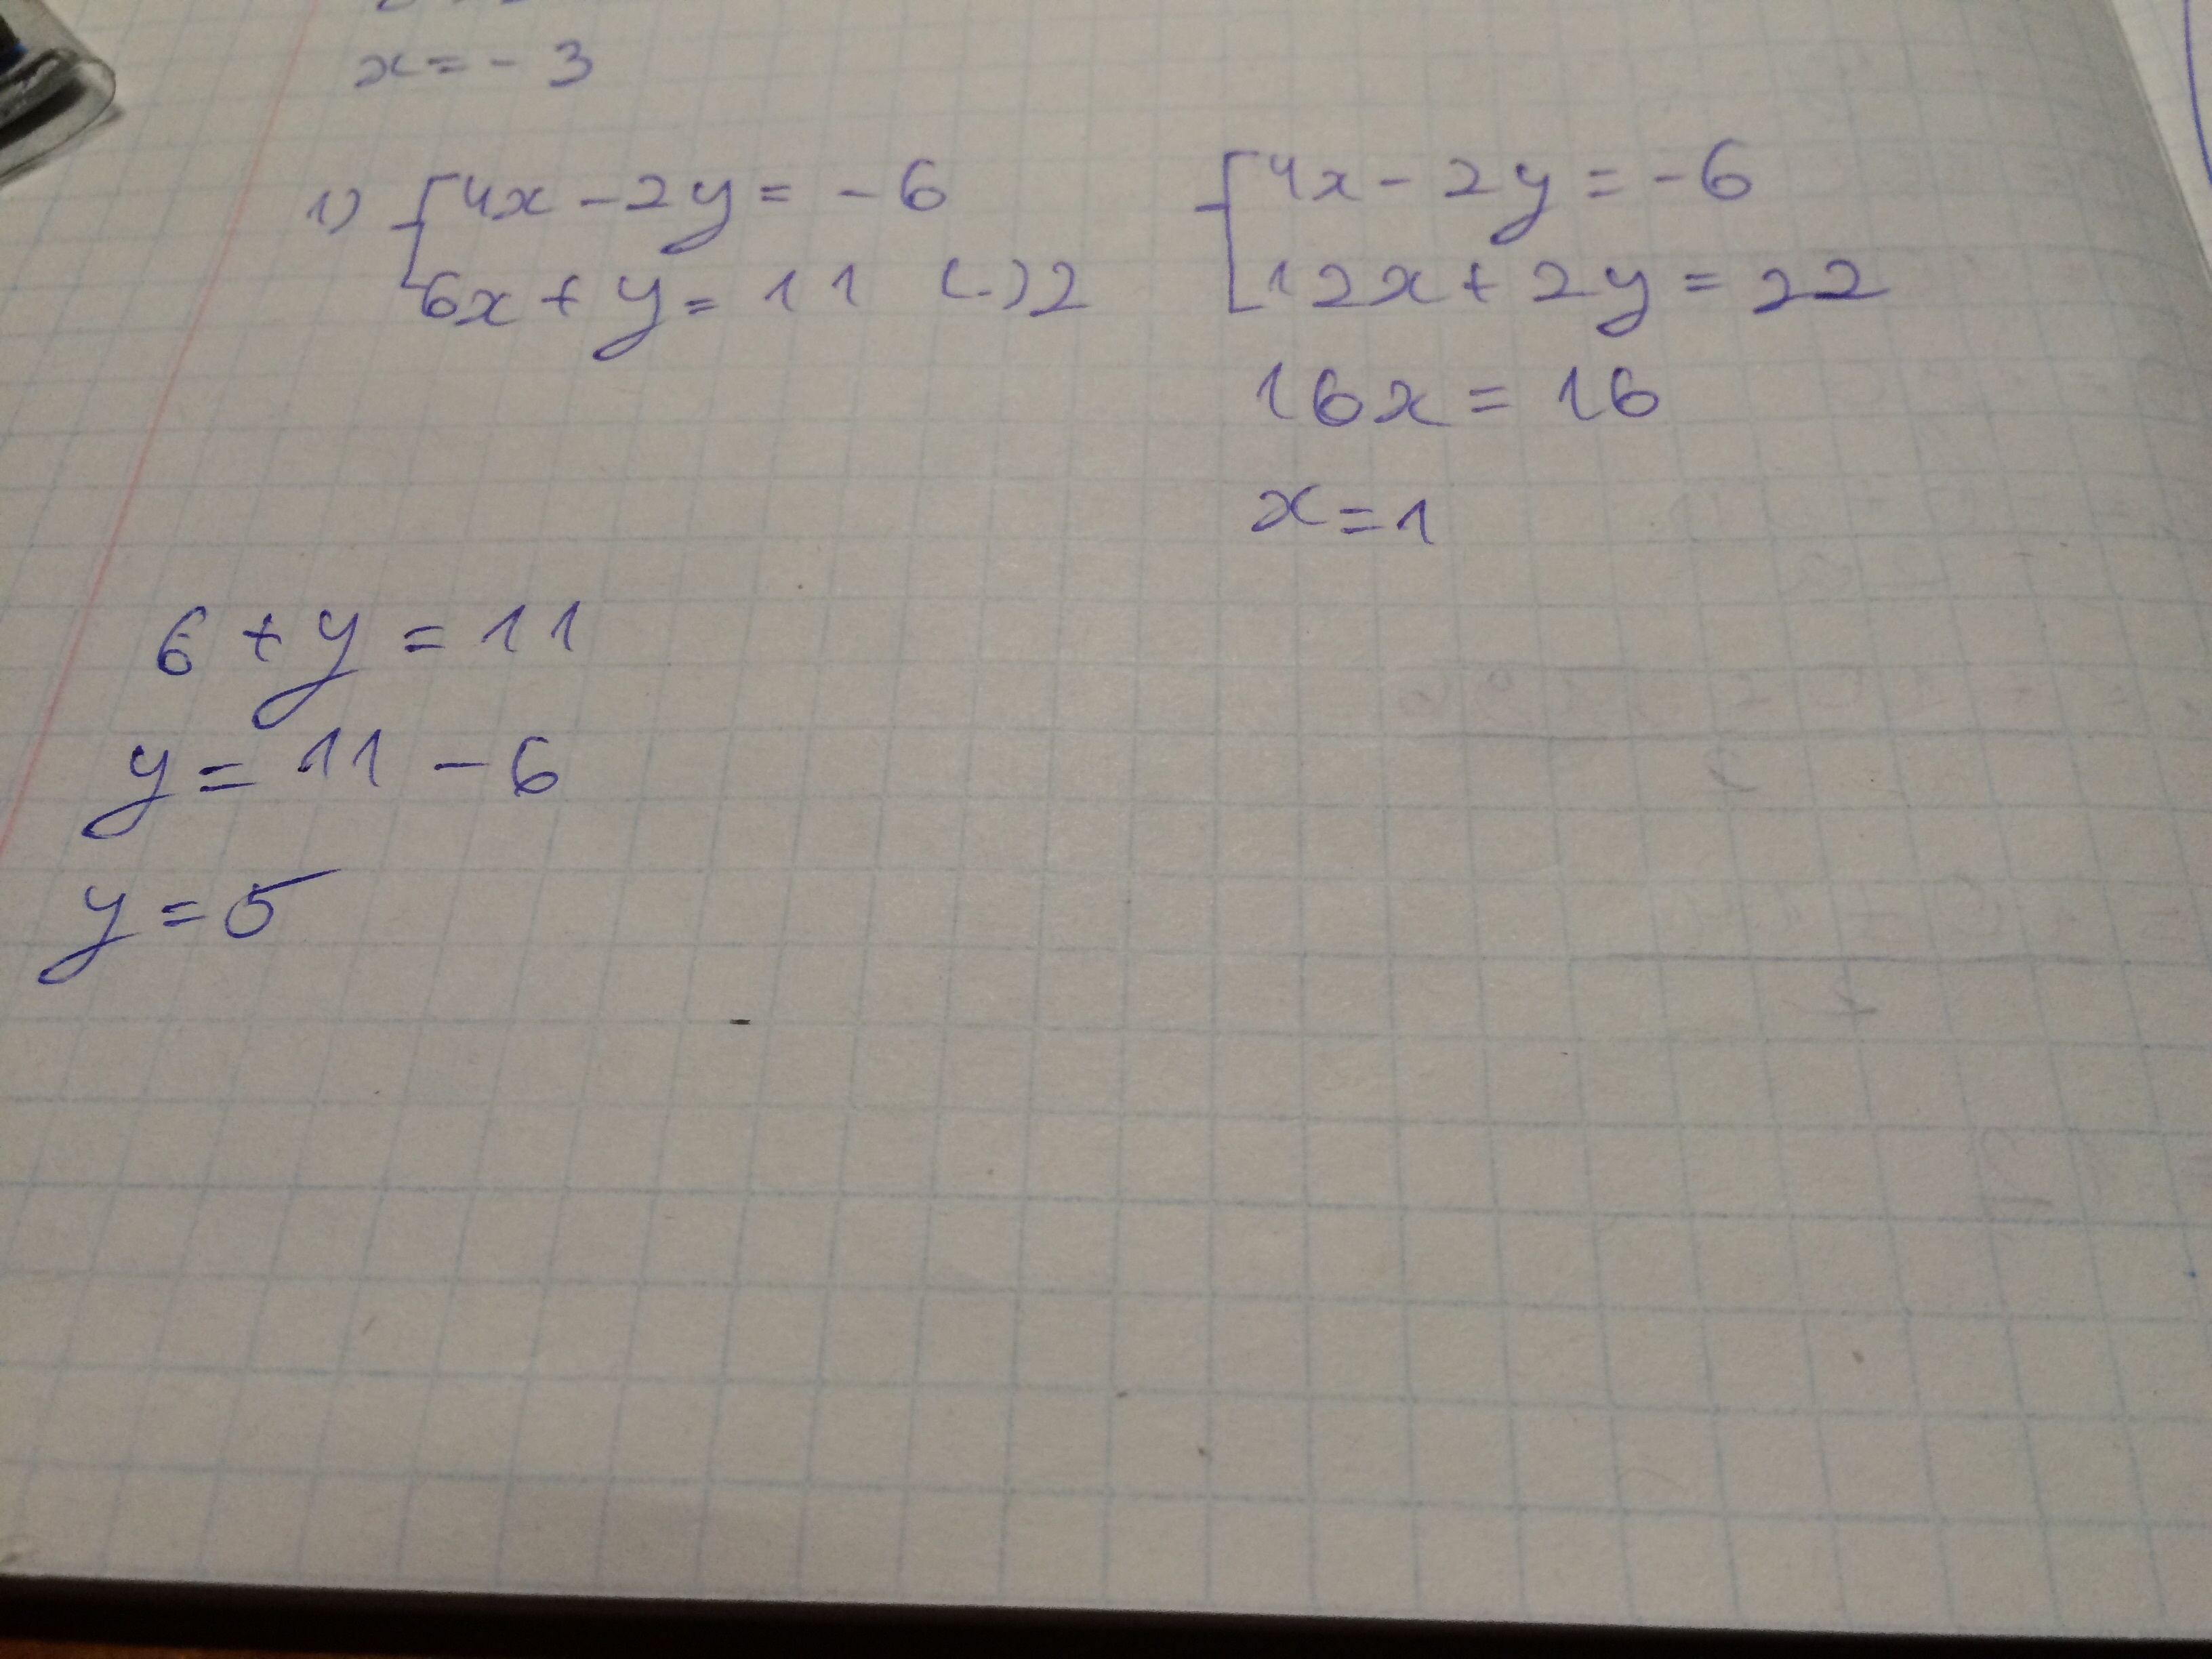 x = - 3
1) {4x - 2y = - 6
6x + y = 11 (·) 2
{4x - 2y = - 6
12x + 2y = 22
16x = 16
x = 1
6 + y = 11
y = 11 - 6
y = 5